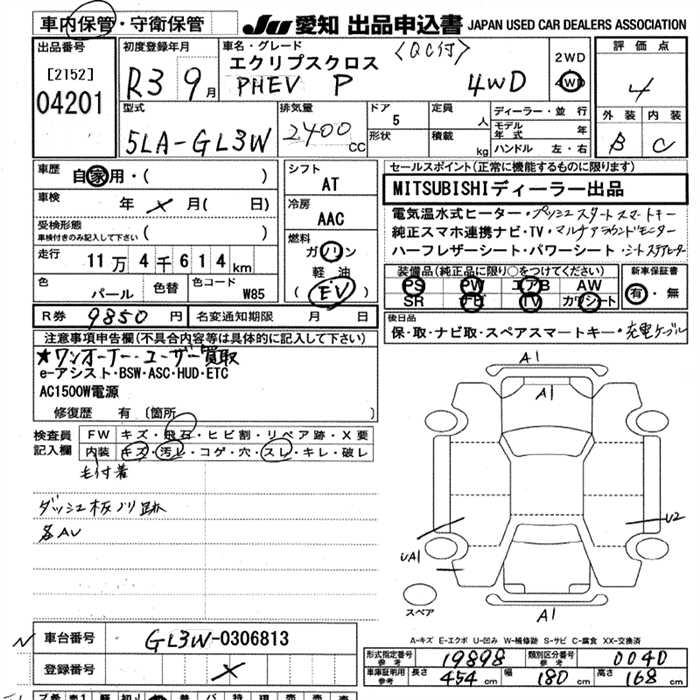 車内保管・守衛保管
JU 愛知 出品申込書 JAPAN USED CAR DEALERS ASSOCIATION
出品番号
[2152]
04201
初度登録年月
R3 9月
車名・グレード
(QC付)
エクリプスクロス
PHEV P 4WD
2WD
4WD
評価点
4
外装 内装
B C
型式
5LA-GL3W
排気量
2400 CC
ドア 5
形状
定員 人
積載 kg
ディーラー・並行
モデル年式 年
ハンドル 左・右
車歴
自家用・( )
車検
年 × 月( 日)
受検形態
車検付きのみ記入して下さい ( )
走行
11万4千614km
色 パール
色替
色コード W85
シフト
AT
冷房
AAC
燃料
ガソリン
軽油
(EV)
セールスポイント(正常に機能するものに限ります)
MITSUBISHIディーラー出品
電気温水式ヒーター・プッシュスタートスマートキー
純正スマホ連携ナビ・TV・マルチアラウンドモニター
ハーフレザーシート・パワーシート・シートステアヒーター
装備品(純正品に限り○をつけてください)
PS PW エアB AW
SR ナビ TV カワシート
新車保証書
有・無
R券 9850円
名変通知期限 月 日
後日品
保・取・ナビ取・スペアスマートキー・充電ケーブル
注意事項申告欄(不具合内容等は具体的に記入して下さい)
★ワンオーナー・ユーザー買取
e-アシスト・BSW・ASC・HUD・ETC
AC1500W電源
修復歴 有 (箇所
検査員記入欄
FW キズ・飛石・ヒビ割・リペア跡・X要
内装 キズ・汚レ・コゲ・穴・スレ・キレ・破レ
毛付着
ダッシュ板ノリ跡
各AU
A1
A1
UA1
U2
スペア
A1
A-キズ E-エクボ U-凹み W-補修跡 S-サビ C-腐食 XX-交換済
車台番号 GL3W-0306813
登録番号 ×
形式指定番号 参考 19898
類別区分番号 参考 0040
車庫証明用 参考 長さ 454cm 幅 180cm 高さ 168cm